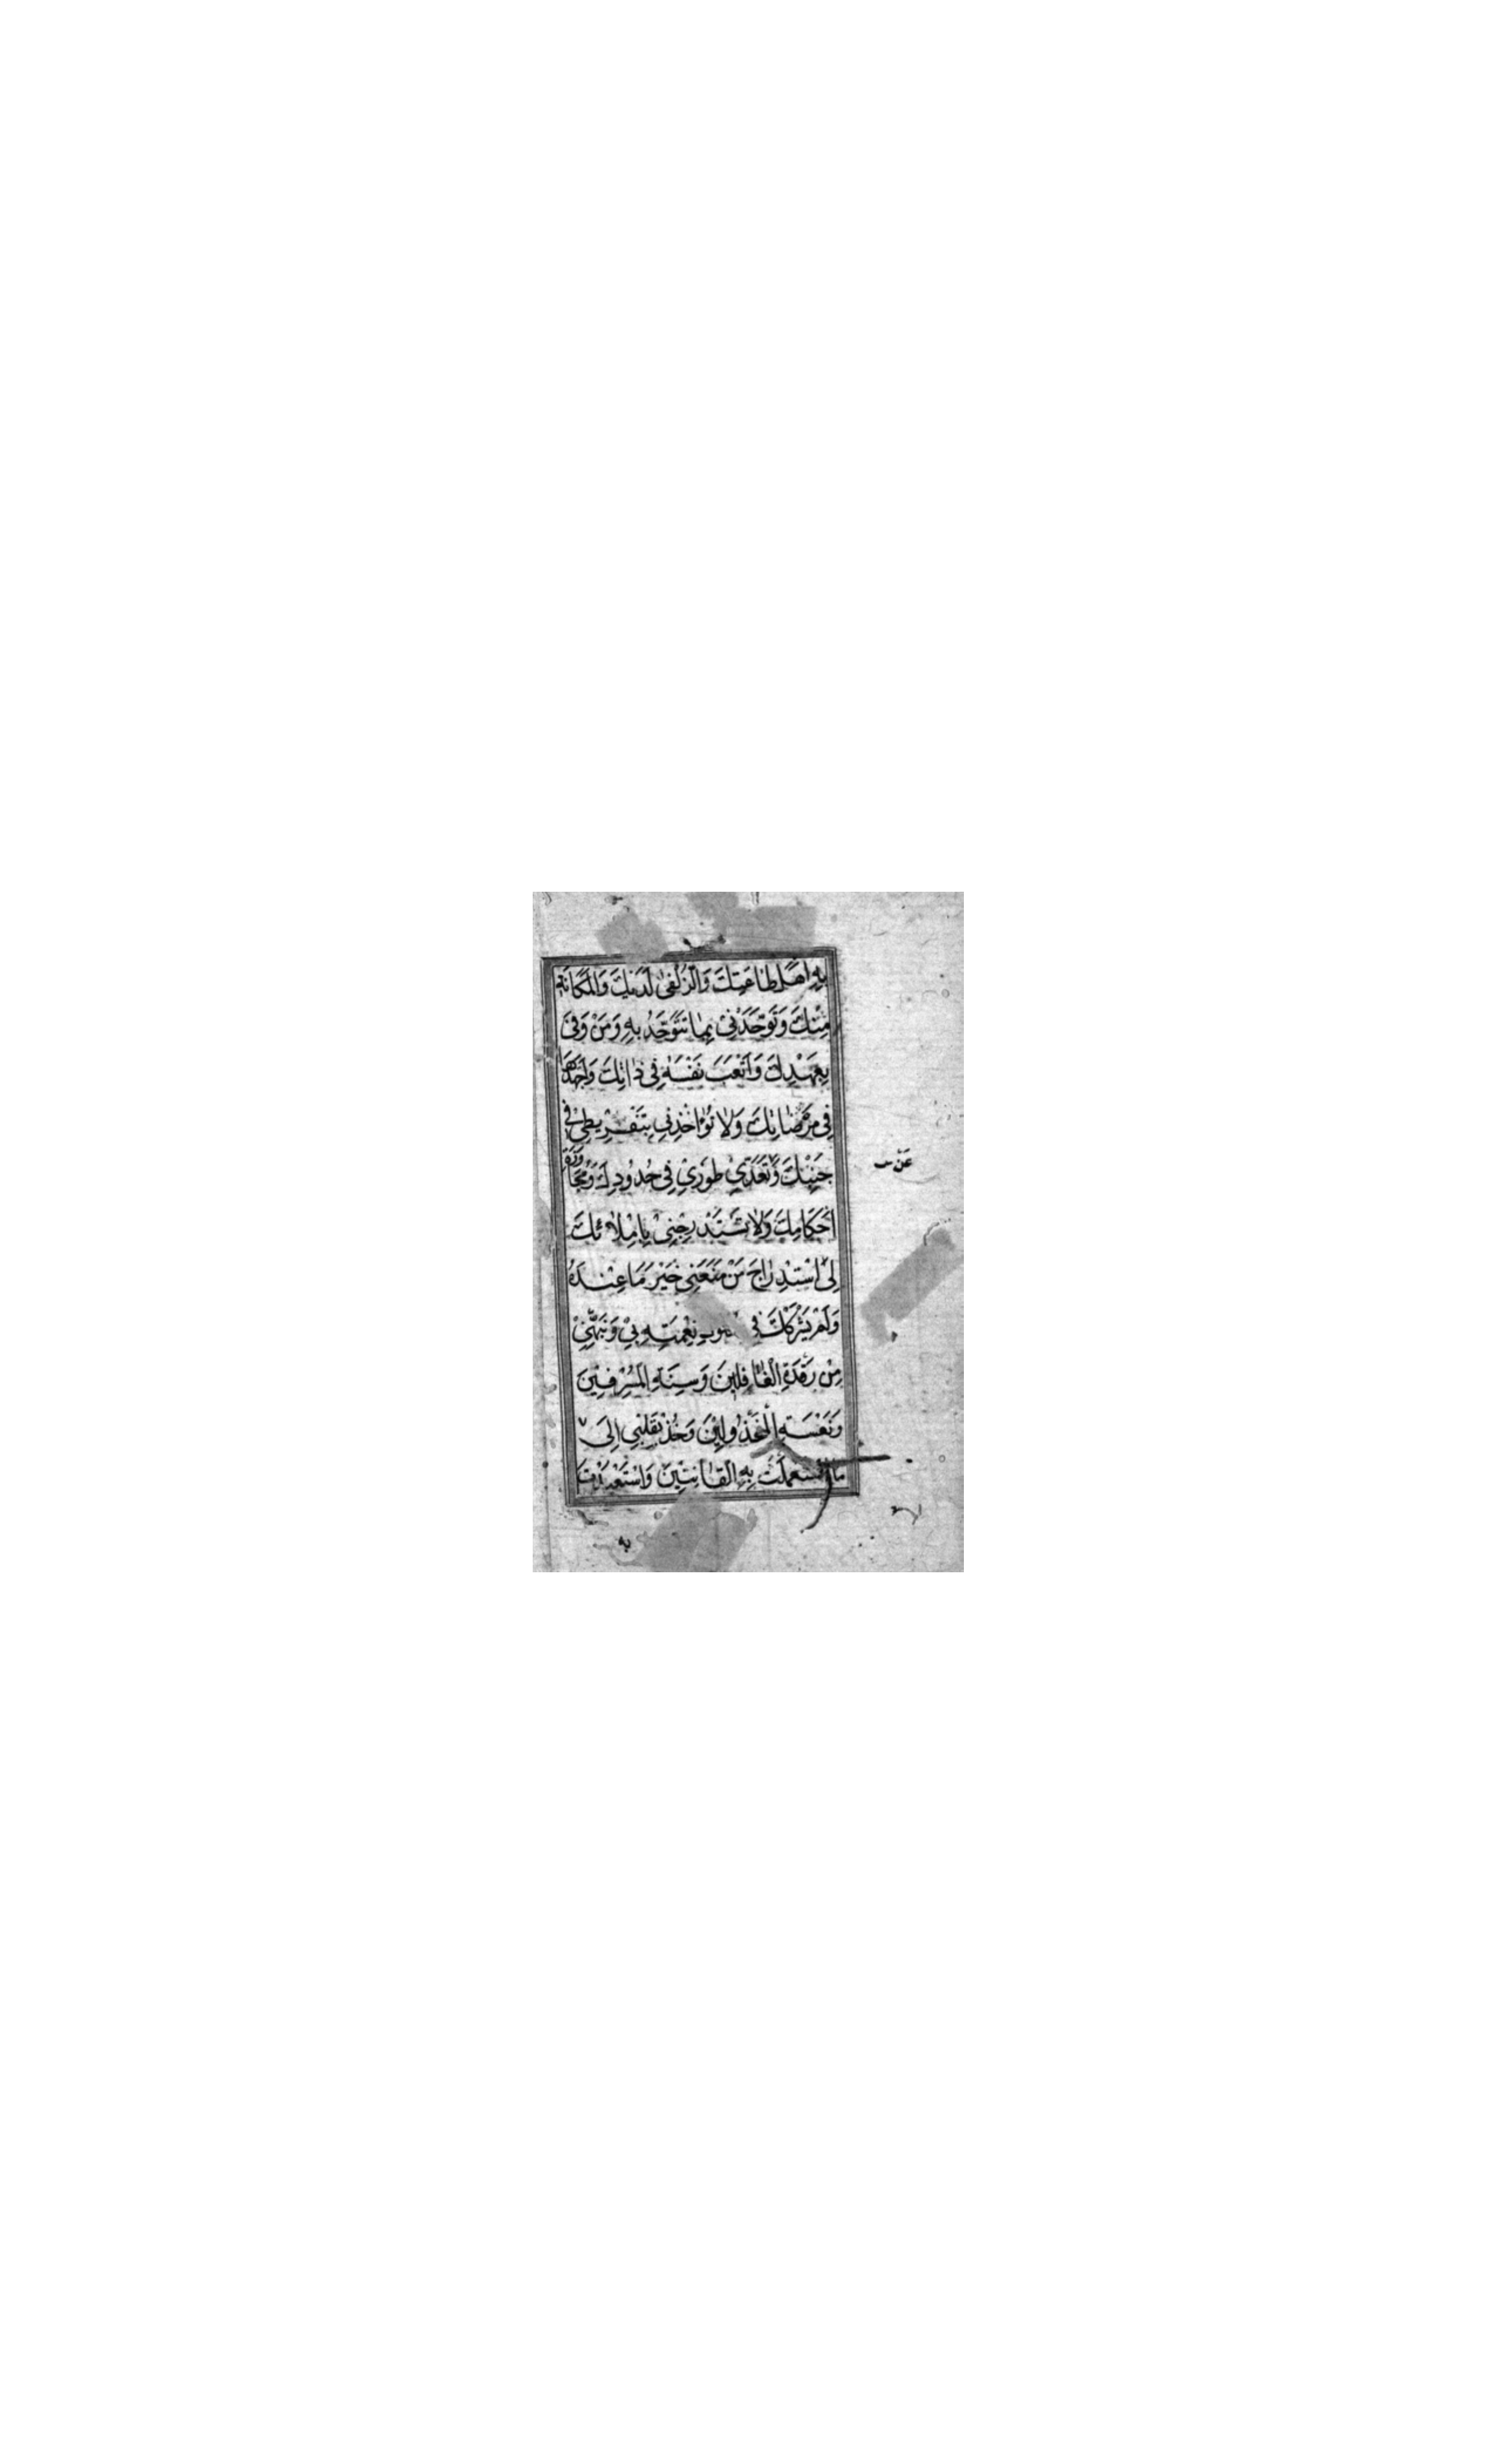 بِهِ اَهْلَ طاعَتِكَ وَالزُّلْفىٰ لَدَيْكَ وَالمَكَانَةِ
مِنْكَ وَتَوَحَّدْنِىْ بِمٰا تَتَوَحَّدُ بِهِ وَمَنْ وَفىٰ
بِعَهْدِكَ وَاَتْعَبَ نَفْسَهُ فِى ذٰاتِكَ وَاَجْهَدَهَا
فِى مَرْضٰاتِكَ وَلٰا تُؤٰاخِذْنِي بِتَفْرِيطِىْ فِى
جَنْبِكَ وَتَعَدّىْ طَوْرِيْ فِى حُدُودِكَ وَمُجٰاوَزَةِ
اَحْكَامِكَ وَلٰا تَسْتَدْرِجْنِىْ بِاِمْلٰائِكَ
لِىْ اسْتِدْرٰاجَ مَنْ مَنَعَنِى خَيْرَ مَا عِنْدَهُ
وَلَمْ يَشْرَكْكَ فِى نِعْمَتِهِ بِيْ وَنَبِّهْنِيْ
مِنْ رَقْدَةِ الْغٰافِلِينَ وَسِنَةِ الْمُسْرِفِيْنَ
وَنَعْسَةِ الْمَخْذُولِيْنَ وَخُذْ بِقَلْبِي اِلىٰ
مَا اسْتَعْمَلْتَ بِهِ الْقٰانِتِيْنَ وَاسْتَعْبَدْتَ
بِهِ